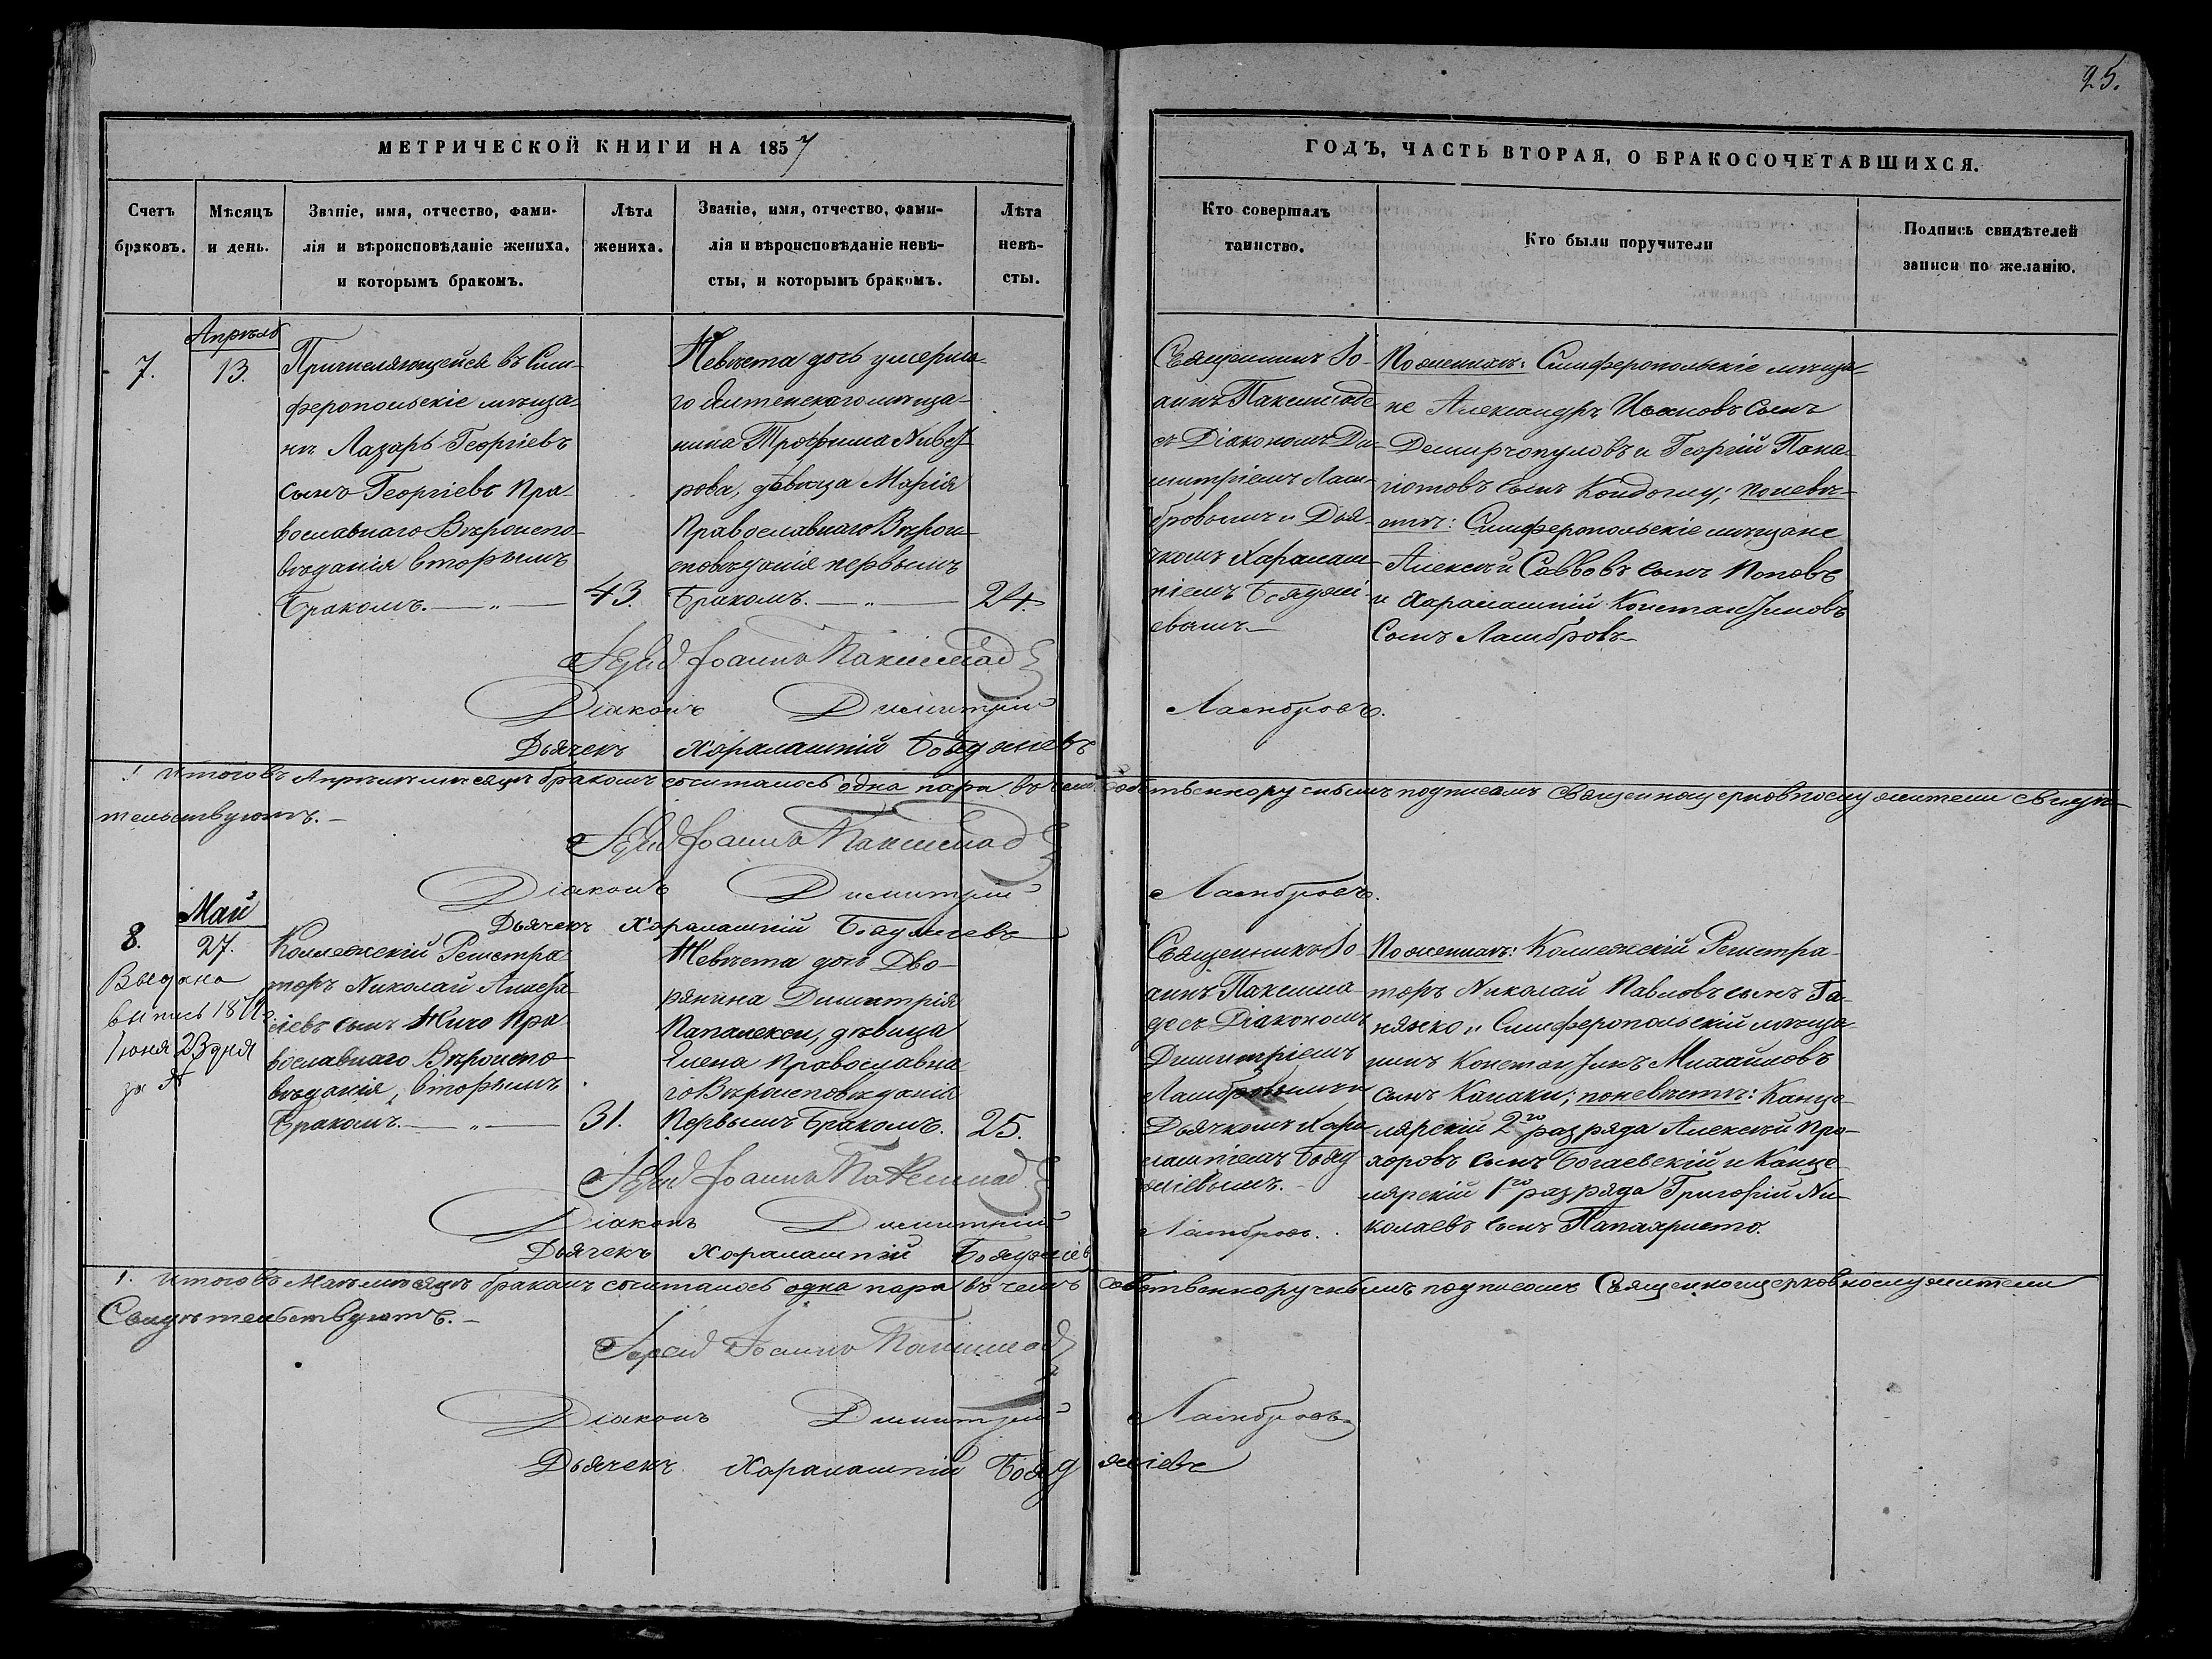 25.
МЕТРИЧЕСКОЙ КНИГИ НА 1857
ГОДЪ, ЧАСТЬ ВТОРАЯ, О БРАКОСОЧЕТАВШИХСЯ.
Счетъ
браковъ.
Мѣсяцъ
и день.
Званіе, имя, отчество, фами-
лія и вѣроисповѣданіе жениха,
и которымъ бракомъ.
Лѣта
жениха.
Званіе, имя, отчество, фами-
лія и вѣроисповѣданіе невѣ-
сты, и которымъ бракомъ.
Лѣта
невѣ-
сты.
Кто совершалъ
таинство.
Кто были поручители
Подпись свидѣтелей
записи по желанію.
7.
Апрѣль
13.
Причисляющейся въ Сим-
феропольскіе мѣща-
не Лазарь Георгіевъ
сынъ Георгіевъ Пра-
вославнаго Вѣроиспо-
вѣданія вторымъ
Бракомъ.
43.
Невѣста дочь умерша-
го Ялтенскаго мѣща-
нина Трофима
дѣвица Марія
Православнаго Вѣрои-
сповѣданія первымъ
Бракомъ.
24.
Священникъ Іо-
аннъ Паксимаде
съ Діакономъ Ди-
митріемъ Лам-
бровымъ и Дья-
чкомъ Харалам-
піемъ Бояджі-
евымъ
По женихѣ: Симферопольскіе мѣща-
не Александръ Ивановъ сынъ
Демирчопуловъ и Георгій Пана-
готовъ сынъ; по невѣ-
стѣ: Симферопольскіе мѣщане
Алексѣй Саввовъ сынъ Поповъ
и Харалампій Константиновъ
Сынъ Ламбровъ
Іерей Іоаннъ Паксимад
Діаконъ Димитрій Ламбровъ.
Дьячекъ Харалампій Бояджіевъ
1 Итого въ Апрѣлѣ мѣсяцѣ бракомъ сочиталось одна пара въ чемъ собственноручнымъ подписомъ Священноцерковнослужители свидѣ-
тельствуютъ.
Іерей Іоаннъ Паксимад
Діаконъ Димитрій Ламбровъ.
Дьячекъ Харалампій Бояджіевъ
8.
Май
27.
Выдана
выпись
Іюня 23 дня
за №
Коллежскій Регистра-
торъ Николай
сынъ Пра-
вославнаго Вѣроиспо-
вѣданія, вторымъ
Бракомъ.
31.
Невѣста дочь Дво-
рянина Димитрія
Папалекси, дѣвица
Елена Православна-
го Вѣроисповѣданія
Первымъ Бракомъ.
25.
Священникъ Іо-
аннъ Паксима-
десъ Діакономъ
Димитріемъ
Ламбровымъ и
Дьячкомъ Хара-
лампіемъ Бояд-
жіевымъ.
По женихѣ: Коллежскій Регистра-
торъ Николай Павловъ сынъ Га-
няжко, и Симферопольскій мѣща-
нинъ Константинъ Михайловъ
сынъ Канаки; по невѣстѣ: Канце-
лярскій 2го разряда Алексѣй Про-
хоровъ сынъ Богаевскій и Канце-
лярскій 1го разряда Григорій Ни-
колаевъ сынъ Папахристо.
Іерей Іоаннъ Паксимад
Діаконъ Димитрій Ламбровъ.
Дьячекъ Харалампій Бояджіев
1. Итого въ Маѣ мѣсяцѣ бракомъ сочиталось одна пара въ чемъ собственноручнымъ подписомъ Священноцерковнослужители
Свидѣтельствуютъ.
Іерей Іоаннъ Паксимад
Діаконъ Димитрій Ламбровъ
Дьячекъ Харалампій Бояджіевъ